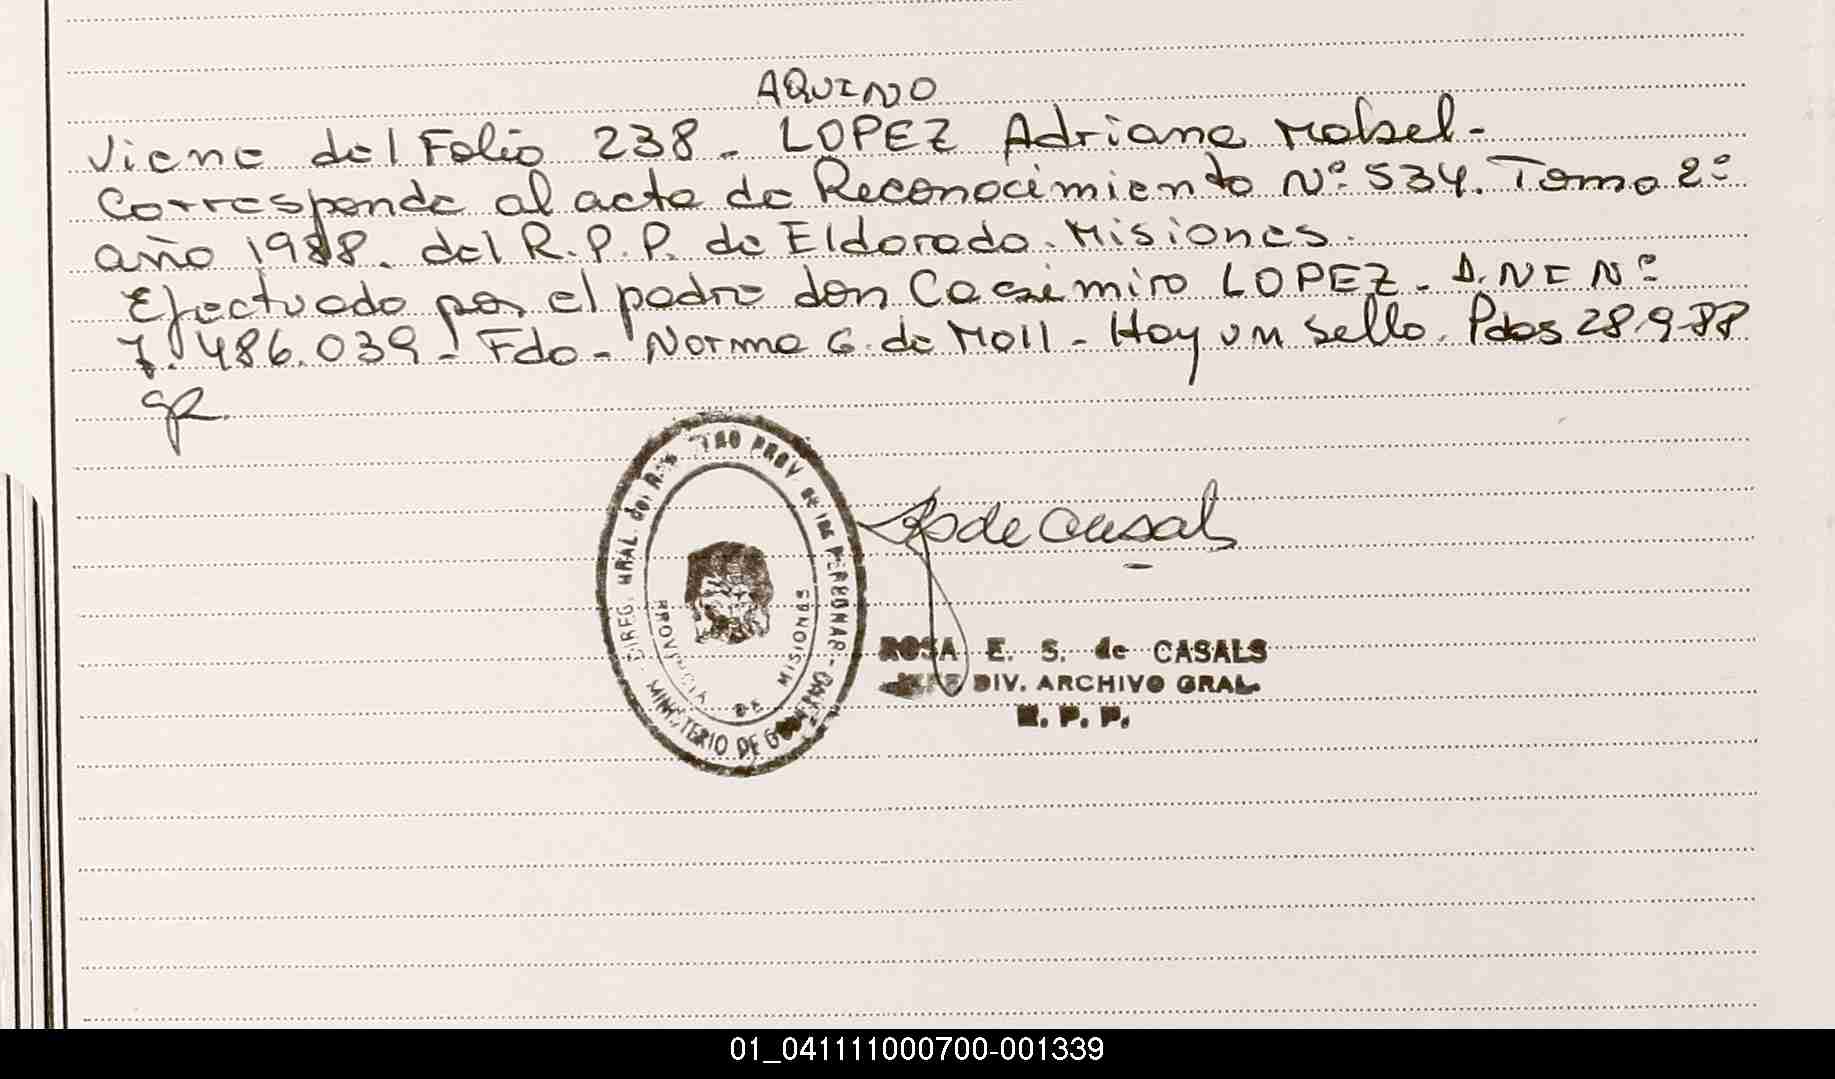 AQUINO
Viene del Folio 238 - LOPEZ Adriana Mabel -
Corresponde al acta de Reconocimiento Nº 534. Tomo 2º
año 1988. del R.P.P. de Eldorado. Misiones.
Efectuado por el padre don Casimiro LOPEZ - D.N.E Nº
7.486.039 - Fdo - Norma G. de Moll - Hay un sello. Pdas 28-9-88
DIREG. GRAL. del REGISTRO PROV de las PERSONAS -
MINISTERIO DE
PROVINCIA DE MISIONES
de Casals
ROSA E. S. de CASALS
JEFE DIV. ARCHIVO GRAL.
R. P. P.
01_041111000700-001339